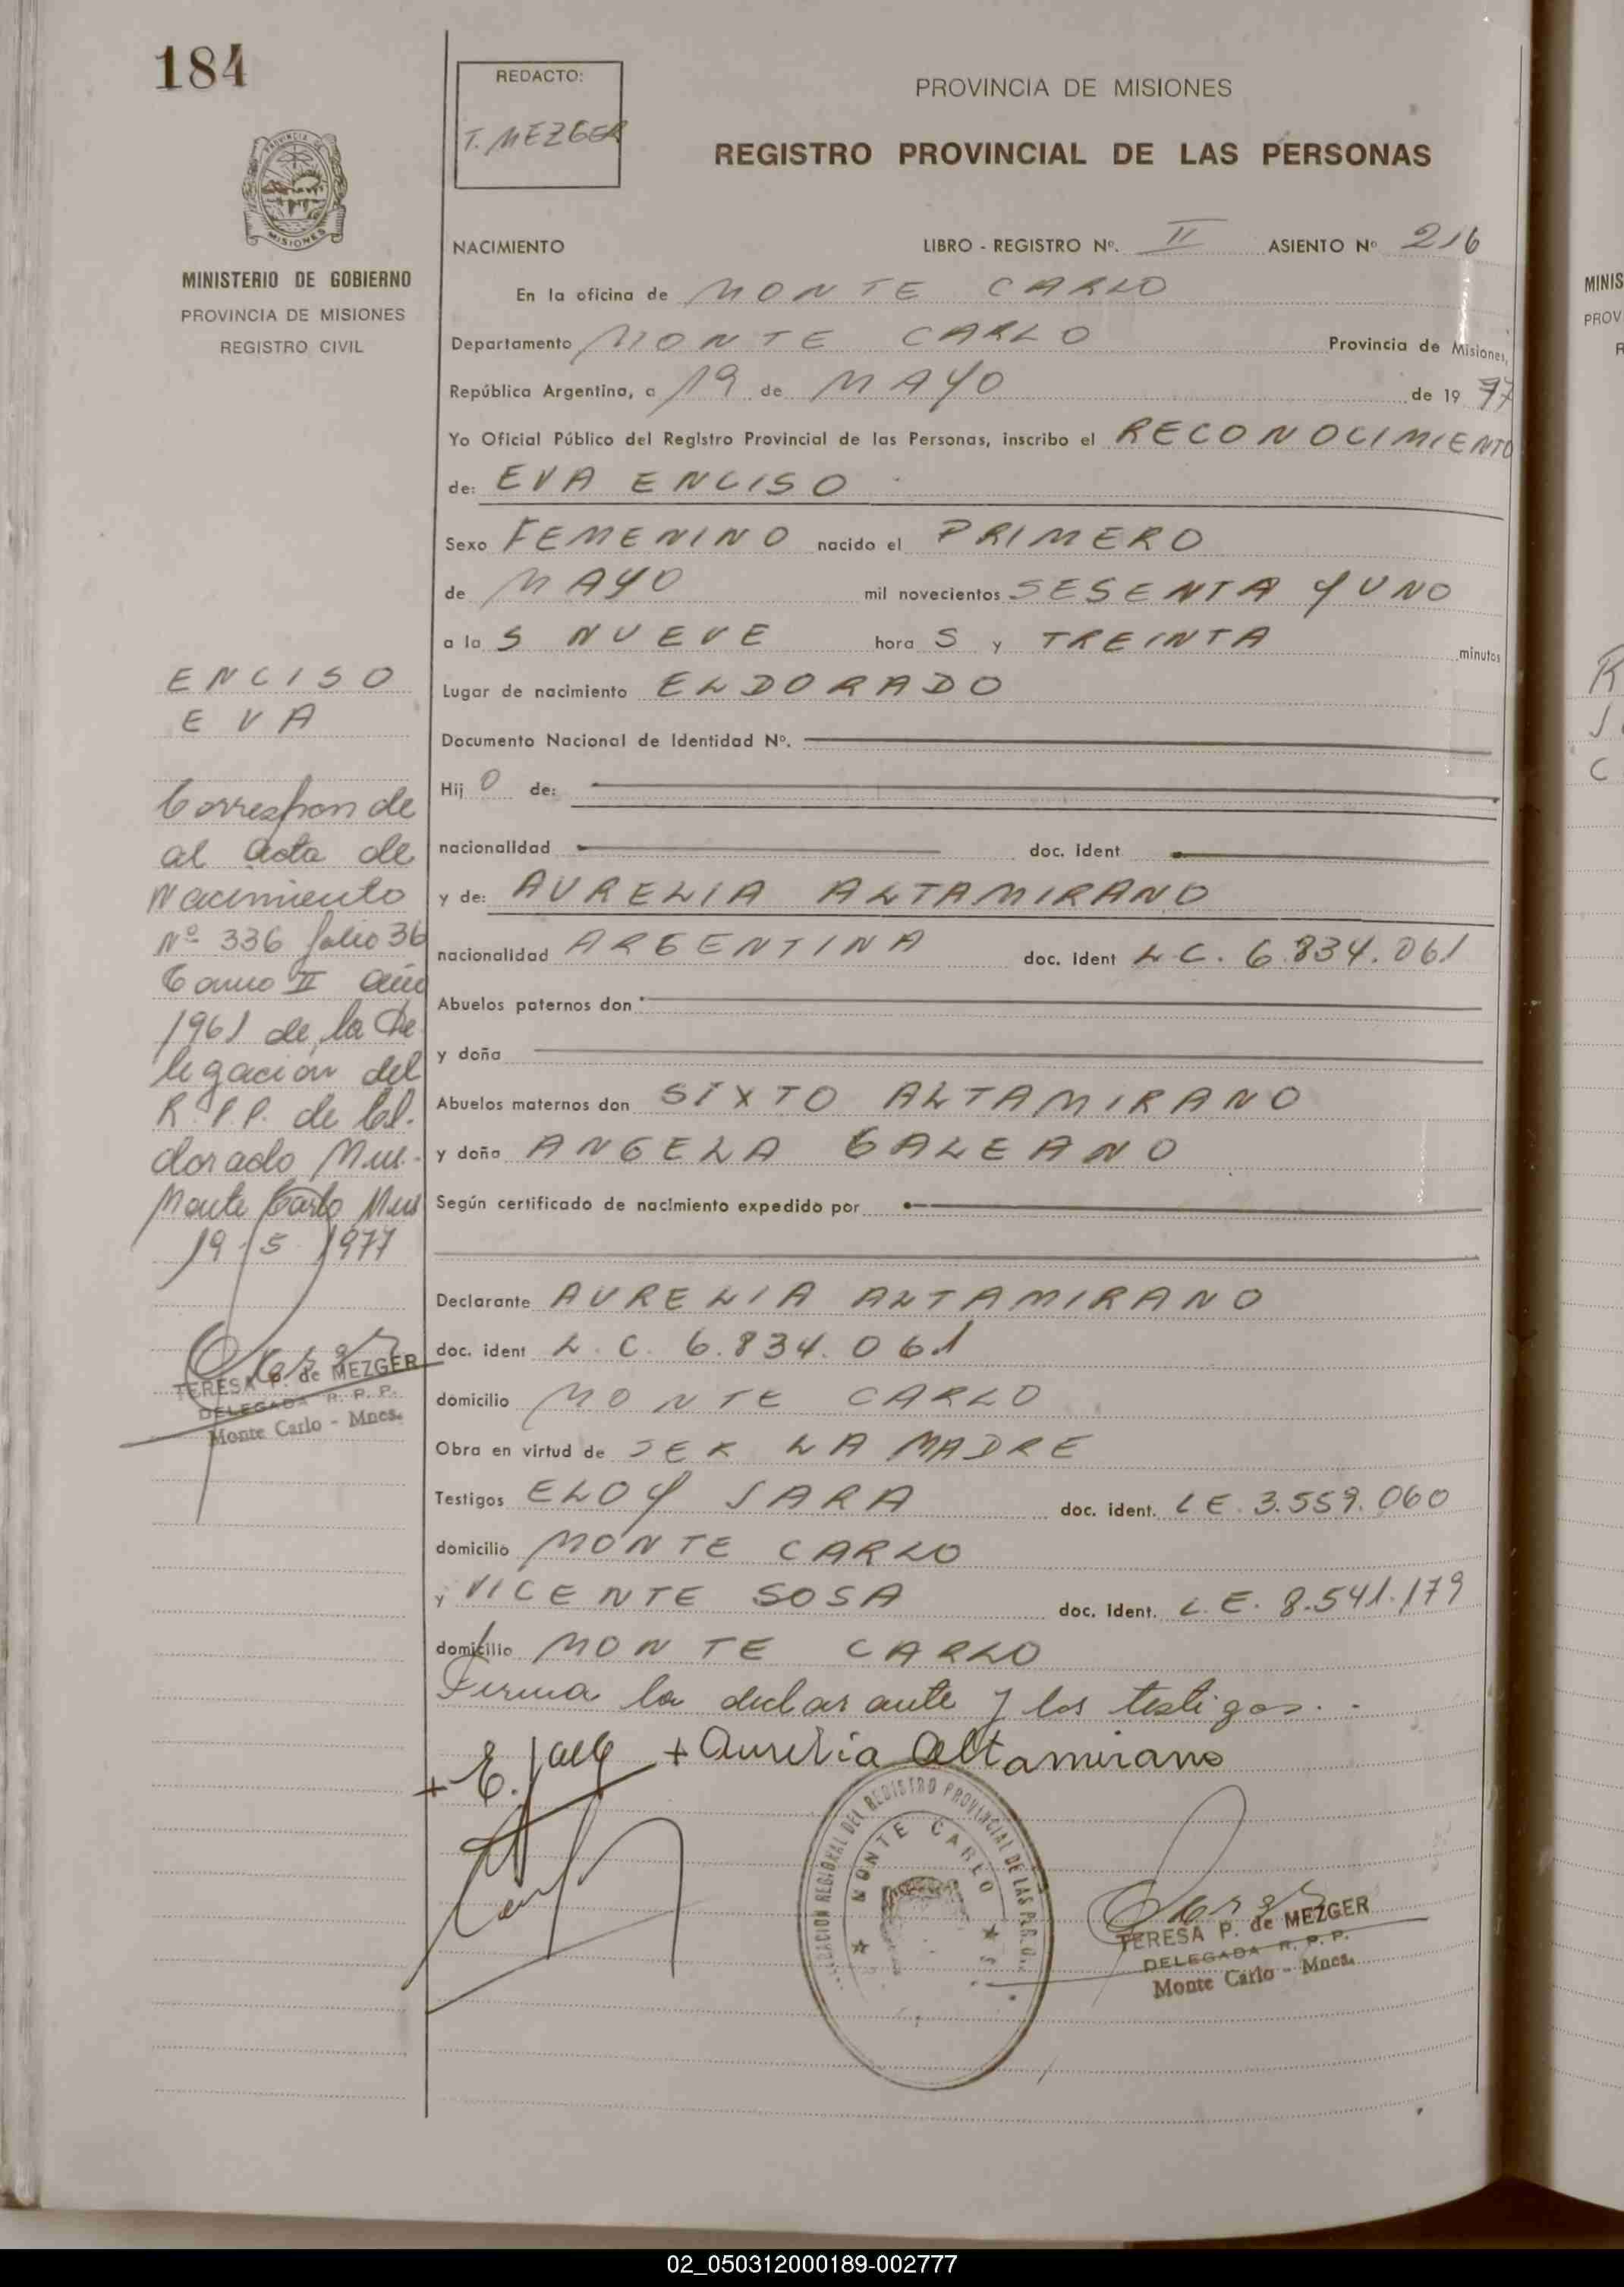 184
REDACTO:
T. MEZGER
PROVINCIA DE MISIONES
REGISTRO PROVINCIAL DE LAS PERSONAS
PROVINCIA DE
MISIONES
MINISTERIO DE GOBIERNO
PROVINCIA DE MISIONES
REGISTRO CIVIL
NACIMIENTO LIBRO - REGISTRO Nº. II ASIENTO Nº 216
En la oficina de MONTE CARLO
Departamento MONTE CARLO Provincia de Misiones,
República Argentina, a 19 de MAYO de 19 77
Yo Oficial Público del Registro Provincial de las Personas, inscribo el RECONOCIMIENTO
de: EVA ENCISO
Sexo FEMENINO nacido el PRIMERO
de MAYO mil novecientos SESENTA Y UNO
a la S NUEVE hora S y TREINTA minutos
Lugar de nacimiento ELDORADO
Documento Nacional de Identidad Nº.
Hij O de:
nacionalidad doc. ident
y de: AURELIA ALTAMIRANO
nacionalidad ARGENTINA doc. ident L C. 6.834.061
Abuelos paternos don
y doña
Abuelos maternos don SIXTO ALTAMIRANO
y doña ANGELA GALEANO
Según certificado de nacimiento expedido por
Declarante AURELIA ALTAMIRANO
doc. ident L. C. 6.834.061
domicilio MONTE CARLO
Obra en virtud de SER LA MADRE
Testigos ELOY JARA doc. ident. L E. 3.559.060
domicilio MONTE CARLO
y VICENTE SOSA doc. ident. L. E. 8.541.179
domicilio MONTE CARLO
Firma la declarante y los testigos.
+ E. + Aurelia Altamirano
REGIONAL DEL REGISTRO PROVINCIAL DE LAS PER.
MONTE CARLO
TERESA P. de MEZGER
DELEGADA R. P. P.
Monte Carlo - Mnes.
ENCISO
EVA
Corresponde
al acta de
Nacimiento
Nº 336 folio 36
Tomo II año
1961 de la De
legación del
R.P.P. de El.
dorado Mnes.
Monte Carlo Mnes
19-5-1977
TERESA P. de MEZGER
DELEGADA R. P. P.
Monte Carlo - Mnes.
MINIS
PROV
R
02_050312000189-002777